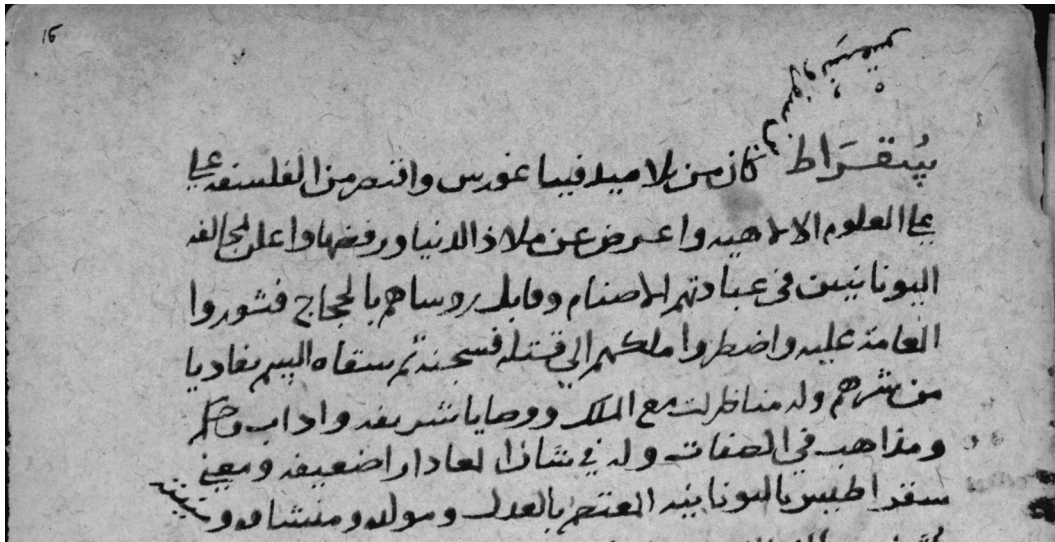 سقراط كان من تلاميد فيثاغورس واقتصر من الفلسفه علي
علي العلوم الالاهيه واعرض عن ملاذ الدنيا ورفضها واعلن بمخالفه
اليونانيين في عبادتهم الاصنام وقابل روساهم بالحجاج فثوروا
العامة عليه واضطروا ملكهم الي قتله فسجنه ثم سقاه السم تفاديا
من شرهم وله مناظرات مع الملك ووصايا شريفه واداب وحكم
ومذاهب في الصفات وله في شان المعاد اراضعيفه ومعني
سقراطيس باليونانيه المعتصم بالعدل ومولده ومنشاه و